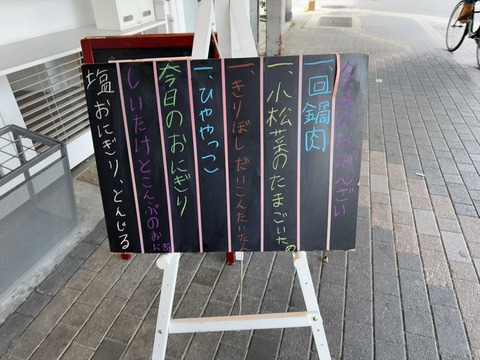 一、回鍋肉
一、小松菜のたまごいため
一、きりぼしだいこんたいたん
一、ひややっこ
今日のおにぎり
しいたけとこんぶのおにぎり
塩おにぎり、とんじる